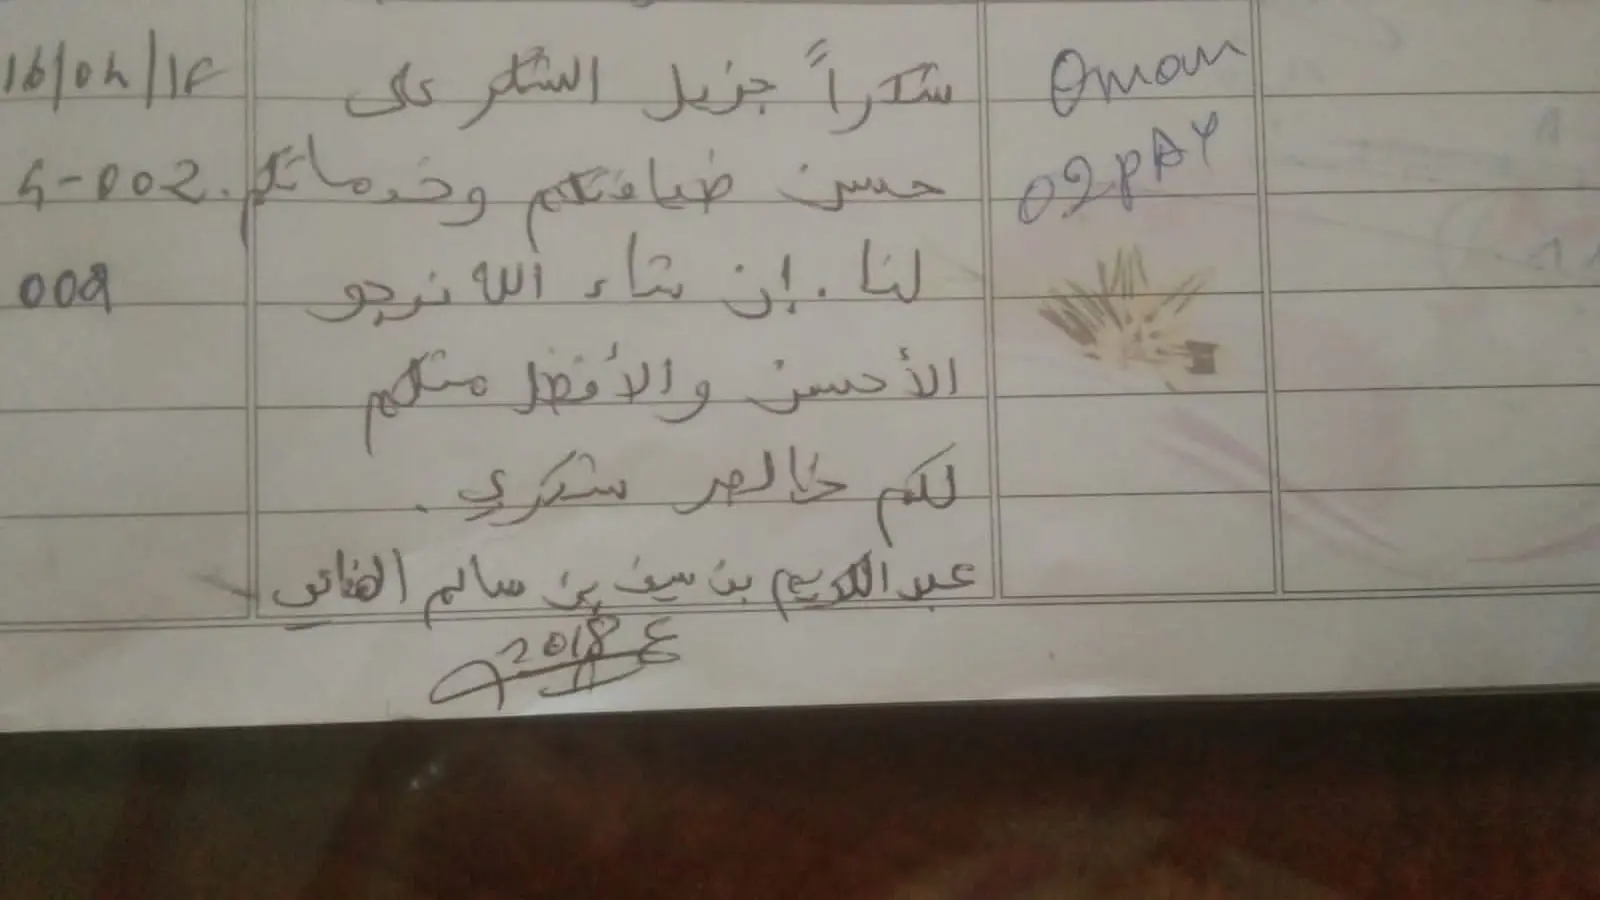 شكراً جزيل الشكر على
حسن ضيافتكم وخدماتكم
لنا . إن شاء الله نرجو
الأحسن والأفضل منكم
لكم خالص شكري .
عبد الكريم بن سيف بن سالم
2018
Oman
02 DAY
16/04/18
5-002
009